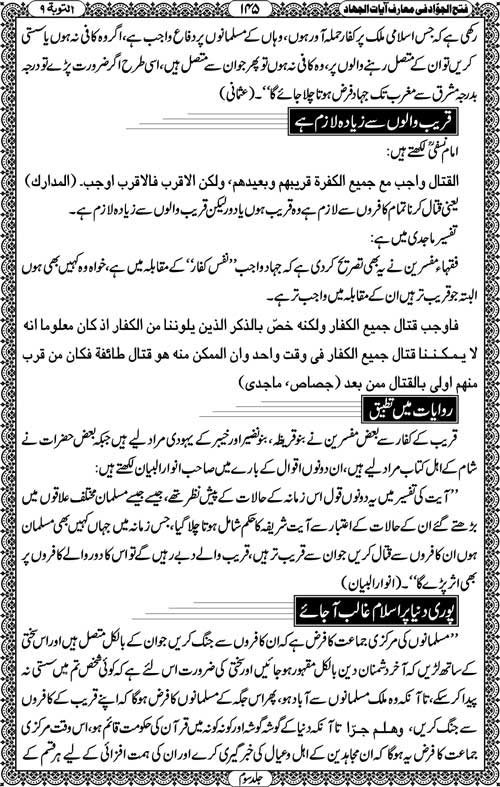 فتح الجوّاد فی معارف آیات الجہاد ۱۴۵ التوبة ۹
رکھی ہے کہ جس اسلامی ملک پر کفار حملہ آور ہوں، وہاں کے مسلمانوں پر دفاع واجب ہے، اگر وہ کافی نہ ہوں یا سستی
کریں تو ان کے متصل رہنے والوں پر، وہ کافی نہ ہوں تو پھر جو ان سے متصل ہیں، اسی طرح اگر ضرورت پڑے تو درجہ
بدرجہ مشرق سے مغرب تک جہاد فرض ہوتا چلا جائے گا‘‘۔ (عثمانی)
قریب والوں سے زیادہ لازم ہے
امام نسفیؒ لکھتے ہیں:
القتال واجب مع جمیع الکفرة قریبھم وبعیدھم، ولکن الاقرب فالاقرب اوجب۔ (المدارک)
یعنی قتال کرنا تمام کافروں سے لازم ہے وہ قریب ہوں یا دور لیکن قریب والوں سے زیادہ لازم ہے۔
تفسیر ماجدی میں ہے:
فقہاء مفسرین نے یہ بھی تصریح کردی ہے کہ جہاد واجب ’’نفس کفار‘‘ کے مقابلہ میں ہے، خواہ وہ کہیں بھی ہوں
البتہ جو قریب تر ہیں ان کے مقابلہ میں واجب تر ہے۔
فاوجب قتال جمیع الکفار ولکنه خصّ بالذکر الذین یلوننا من الکفار اذ کان معلوما انه
لا یمکننا قتال جمیع الکفار فی وقت واحد وان الممکن منه ھو قتال طائفة فکان من قرب
منھم اولی بالقتال ممن بعد (جصاص، ماجدی)
روایات میں تطبیق
قریب کے کفار سے بعض مفسرین نے بنو قریظہ، بنو نضیر اور خیبر کے یہودی مراد لیے ہیں جبکہ بعض حضرات نے
شام کے اہل کتاب مراد لیے ہیں، ان دونوں اقوال کے بارے میں صاحب انوار البیان لکھتے ہیں:
’’آیت کی تفسیر میں یہ دونوں قول اس زمانہ کے حالات کے پیش نظر تھے، جیسے جیسے مسلمان مختلف علاقوں میں
بڑھتے گئے ان کے حالات کے اعتبار سے آیت شریفہ کا حکم شامل ہوتا چلا گیا، جس زمانہ میں جہاں کہیں بھی مسلمان
ہوں ان کافروں سے قتال کریں جو ان سے قریب تر ہیں، قریب والے دبے رہیں گے تو اس کا دور والے کافروں پر
بھی اثر پڑے گا‘‘۔ (انوار البیان)
پوری دنیا پر اسلام غالب آجائے
’’مسلمانوں کی مرکزی جماعت کا فرض ہے کہ ان کافروں سے جنگ کریں جو ان کے بالکل متصل ہیں اور اس سختی
کے ساتھ لڑیں کہ آخر دشمنان دین بالکل مقہور ہو جائیں اور سختی کی ضرورت اس لئے ہے کہ کوئی شخص تم میں سستی نہ
پیدا کر سکے، تا آنکہ وہ ملک مسلمانوں سے آباد ہو، پھر اس جگہ کے مسلمانوں کا فرض ہوگا کہ اپنے قریب کے کافروں
سے جنگ کریں، وھلم جرّا تا آنکہ دنیا کے گوشہ گوشہ اور کونہ کونہ میں قرآن کی حکومت قائم ہو، اس وقت مرکزی
جماعت کا فرض یہ ہوگا کہ ان مجاہدین کے اہل و عیال کی خبر گیری کرے اور ان کی ہمت افزائی کے لیے ہر قسم کے
جلد سوم